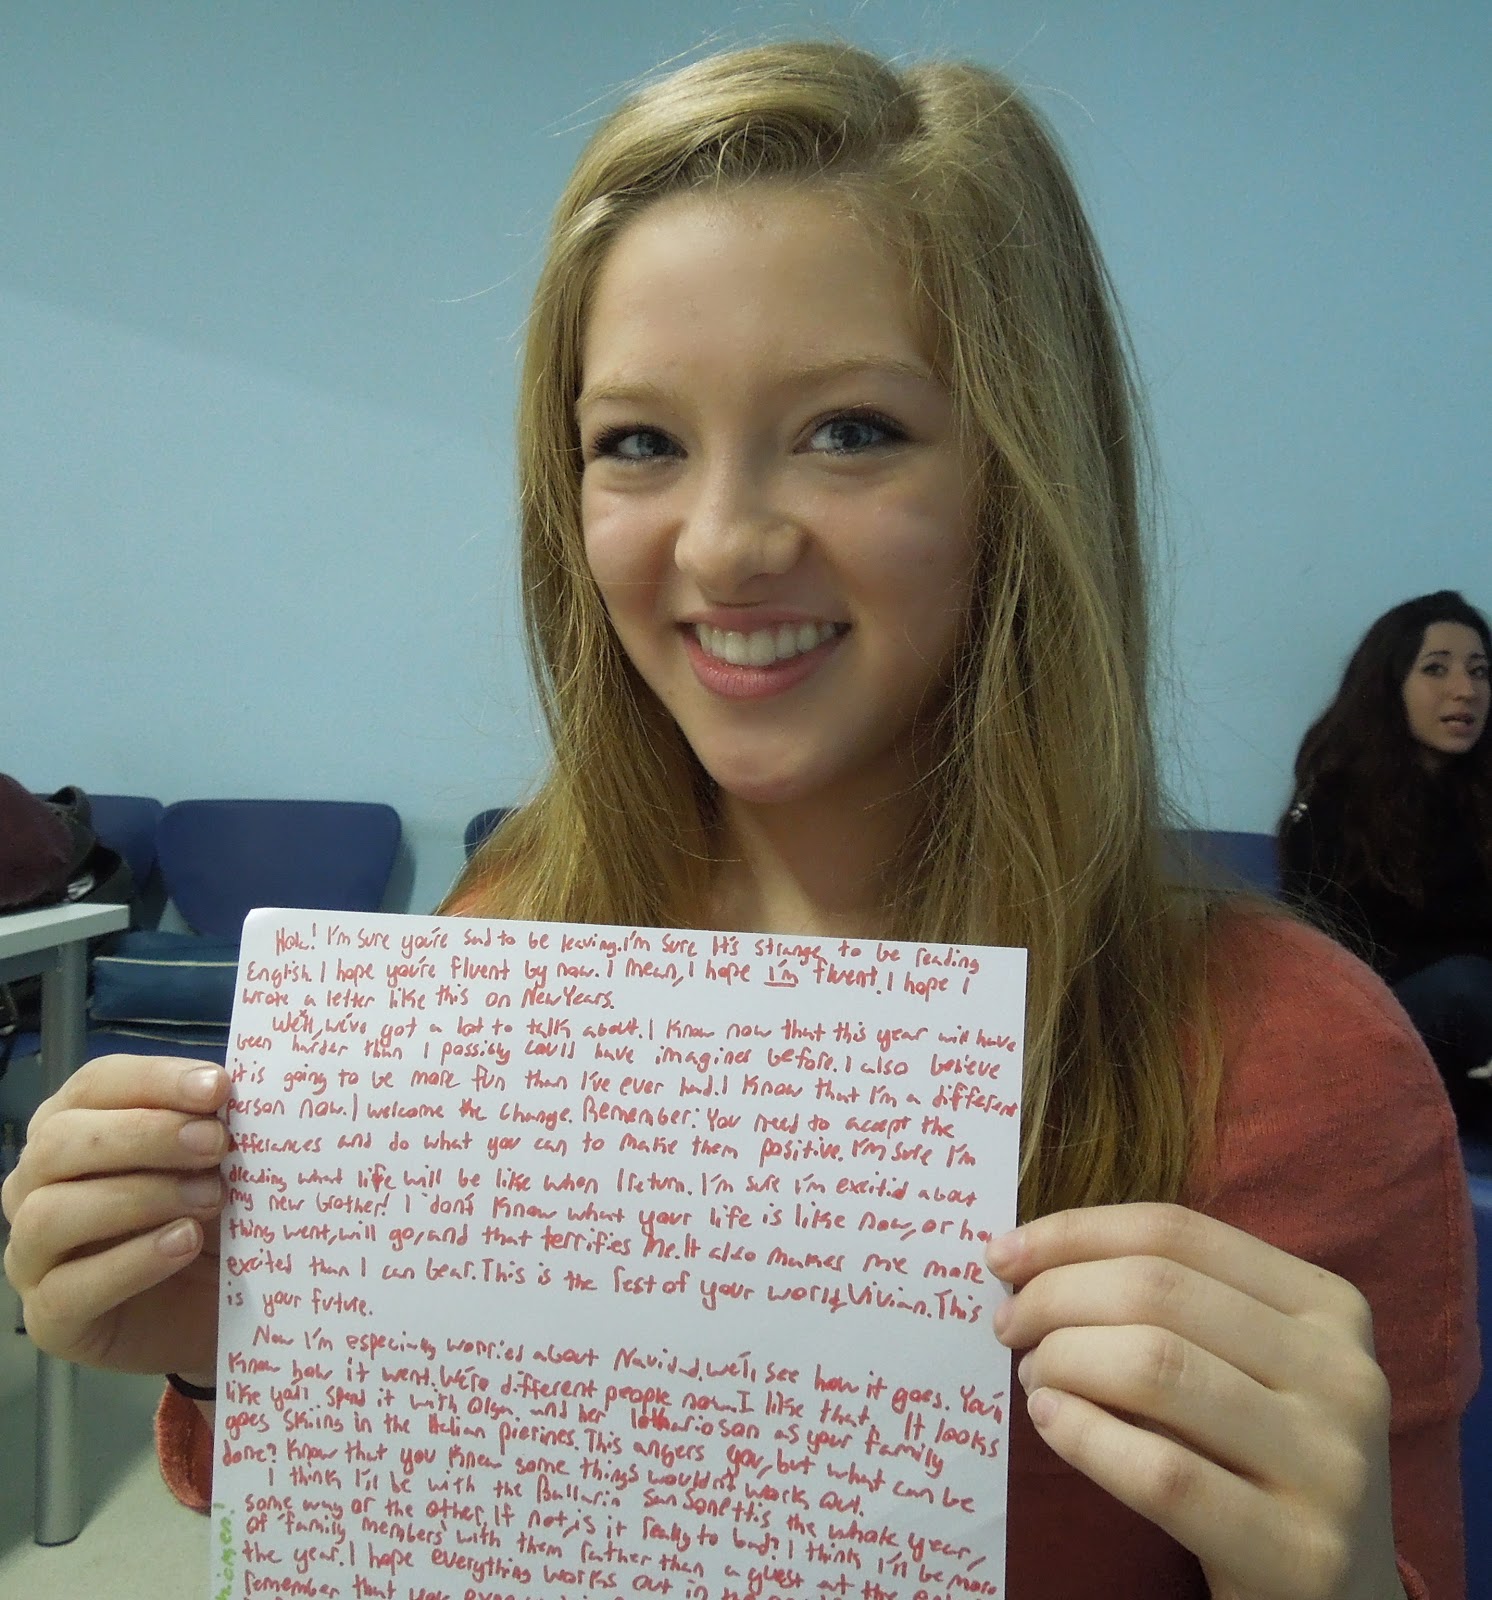 Hola! I'm sure you're sad to be leaving. I'm sure it's strange to be reading
English. I hope you're fluent by now. I mean, I hope I'm fluent. I hope I
wrote a letter like this on New Years.
Well, we've got a lot to talk about. I know now that this year will have
been harder than I possibly could have imagined before. I also believe
it is going to be more fun than I've ever had. I know that I'm a different
person now. I welcome the change. Remember: You need to accept the
differances and do what you can to make them positive. I'm sure I'm
dreading what life will be like when I return. I'm sure i'm excitid about
my new brother! I don't know what your life is like now, or how
thing went, will go, and that terrifies me. It also makes me more
excited than I can bear. This is the rest of your world, Vivian. This
is your future.
Now I'm especially worried about Navidad, we'll see how it goes. You'll
know how it went. We're different people now. I like that. It looks
like you'll spend it with Olga and her lothario son as your family
goes skiing in the Italian This angers you, but what can be
done? Know that you knew some things wouldn't work out.
I think I'll be with the Ballarin Sansonettis the whole year,
some way or the other. If not, is it really to bad? I think I'll be more
of 'family members' with them rather than a guest at the
the year. I hope everything works out in the
remember that you